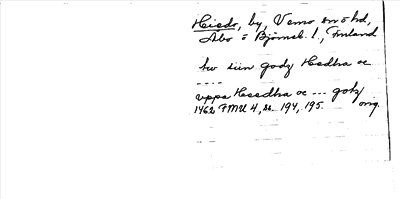 Hiedo, by, Vemo snshd,
Åbo o Björneb. l., Finland
hw siin godz Hedha oc
- - - -
uppa Heedha oc --- gotz
1462 FMU 4, ss. 194, 195. orig.